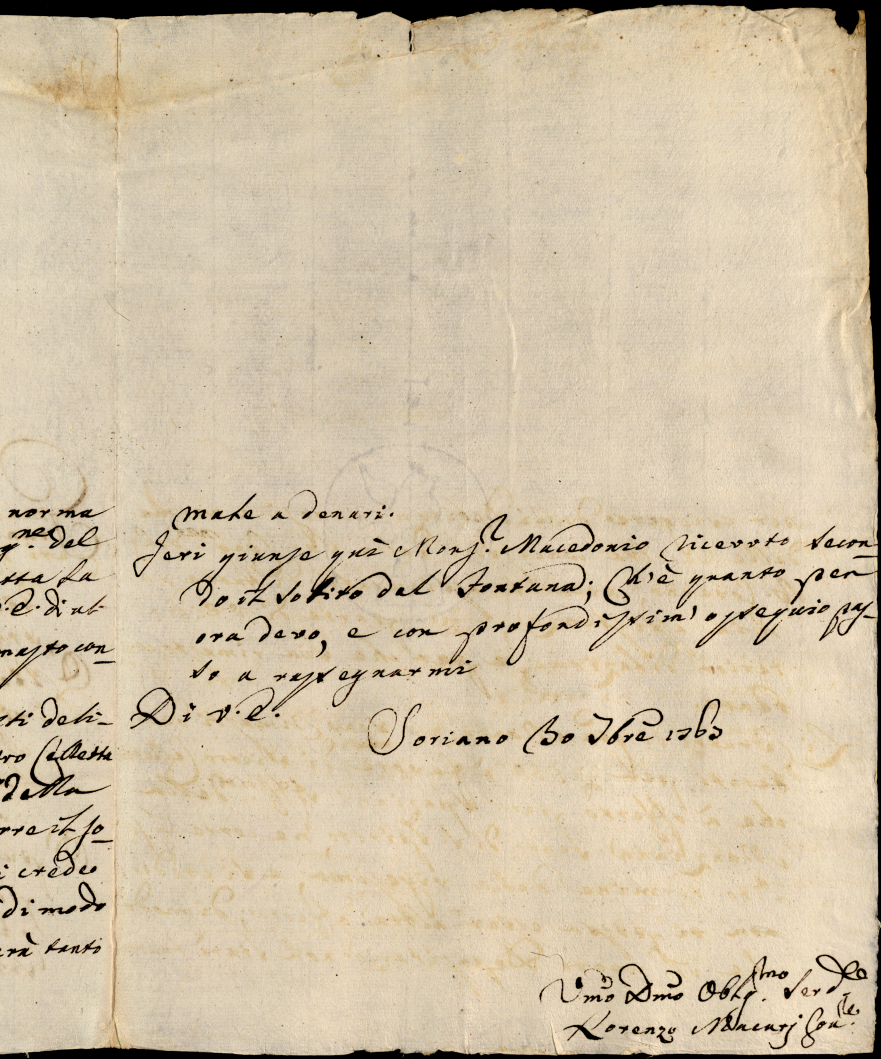 norma
del
tta la
V.E. di ut
masto con_
sti deli_
ro Celletta
della
rre il so_
i credeo
di modo
arà tanto
mate a denari.
Jeri giunse quì Monsr. Macedonio ricevuto secon_
do il solito dal Fontana; Ch'è quanto per
ora devo, e con profondissim' ossequio pas_
so a rassegnarmi
Di V.E.
Soriano 30 7bre 1763
Umo Dmo Obligmo. Serdre
Lorenzo